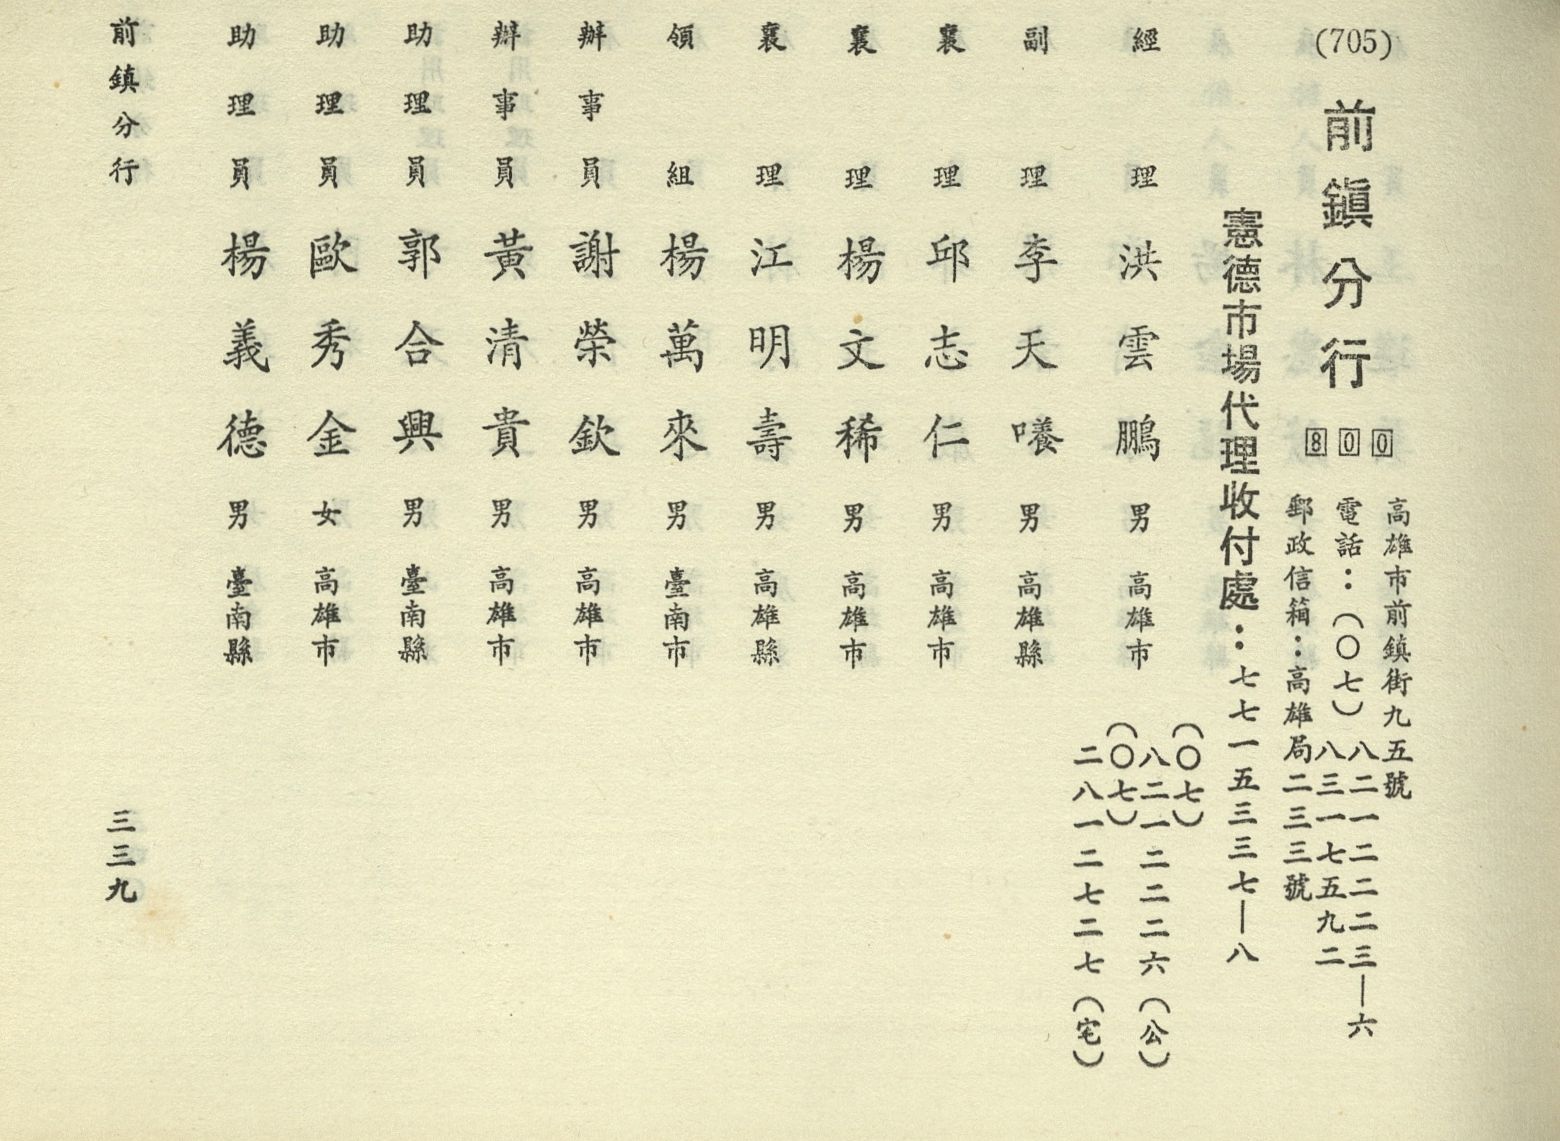 (705)
前鎮分行
800
高雄市前鎮街九五號
電話：（〇七）八二一二二二三—六
八三一七五九二
郵政信箱：高雄局二三三號
憲德市場代理收付處：七七一五三三七—八
經理 洪雲鵬 男 高雄市
（〇七）
八二一二二二六（公）
（〇七）
二八一二七二七（宅）
副理 李天㬢 男 高雄縣
襄理 邱志仁 男 高雄市
襄理 楊文稀 男 高雄市
襄理 江明壽 男 高雄縣
領組 楊萬來 男 臺南市
辦事員 謝榮欽 男 高雄市
辦事員 黃清貴 男 高雄市
助理員 郭合興 男 臺南縣
助理員 歐秀金 女 高雄市
助理員 楊義德 男 臺南縣
前鎮分行
三三九